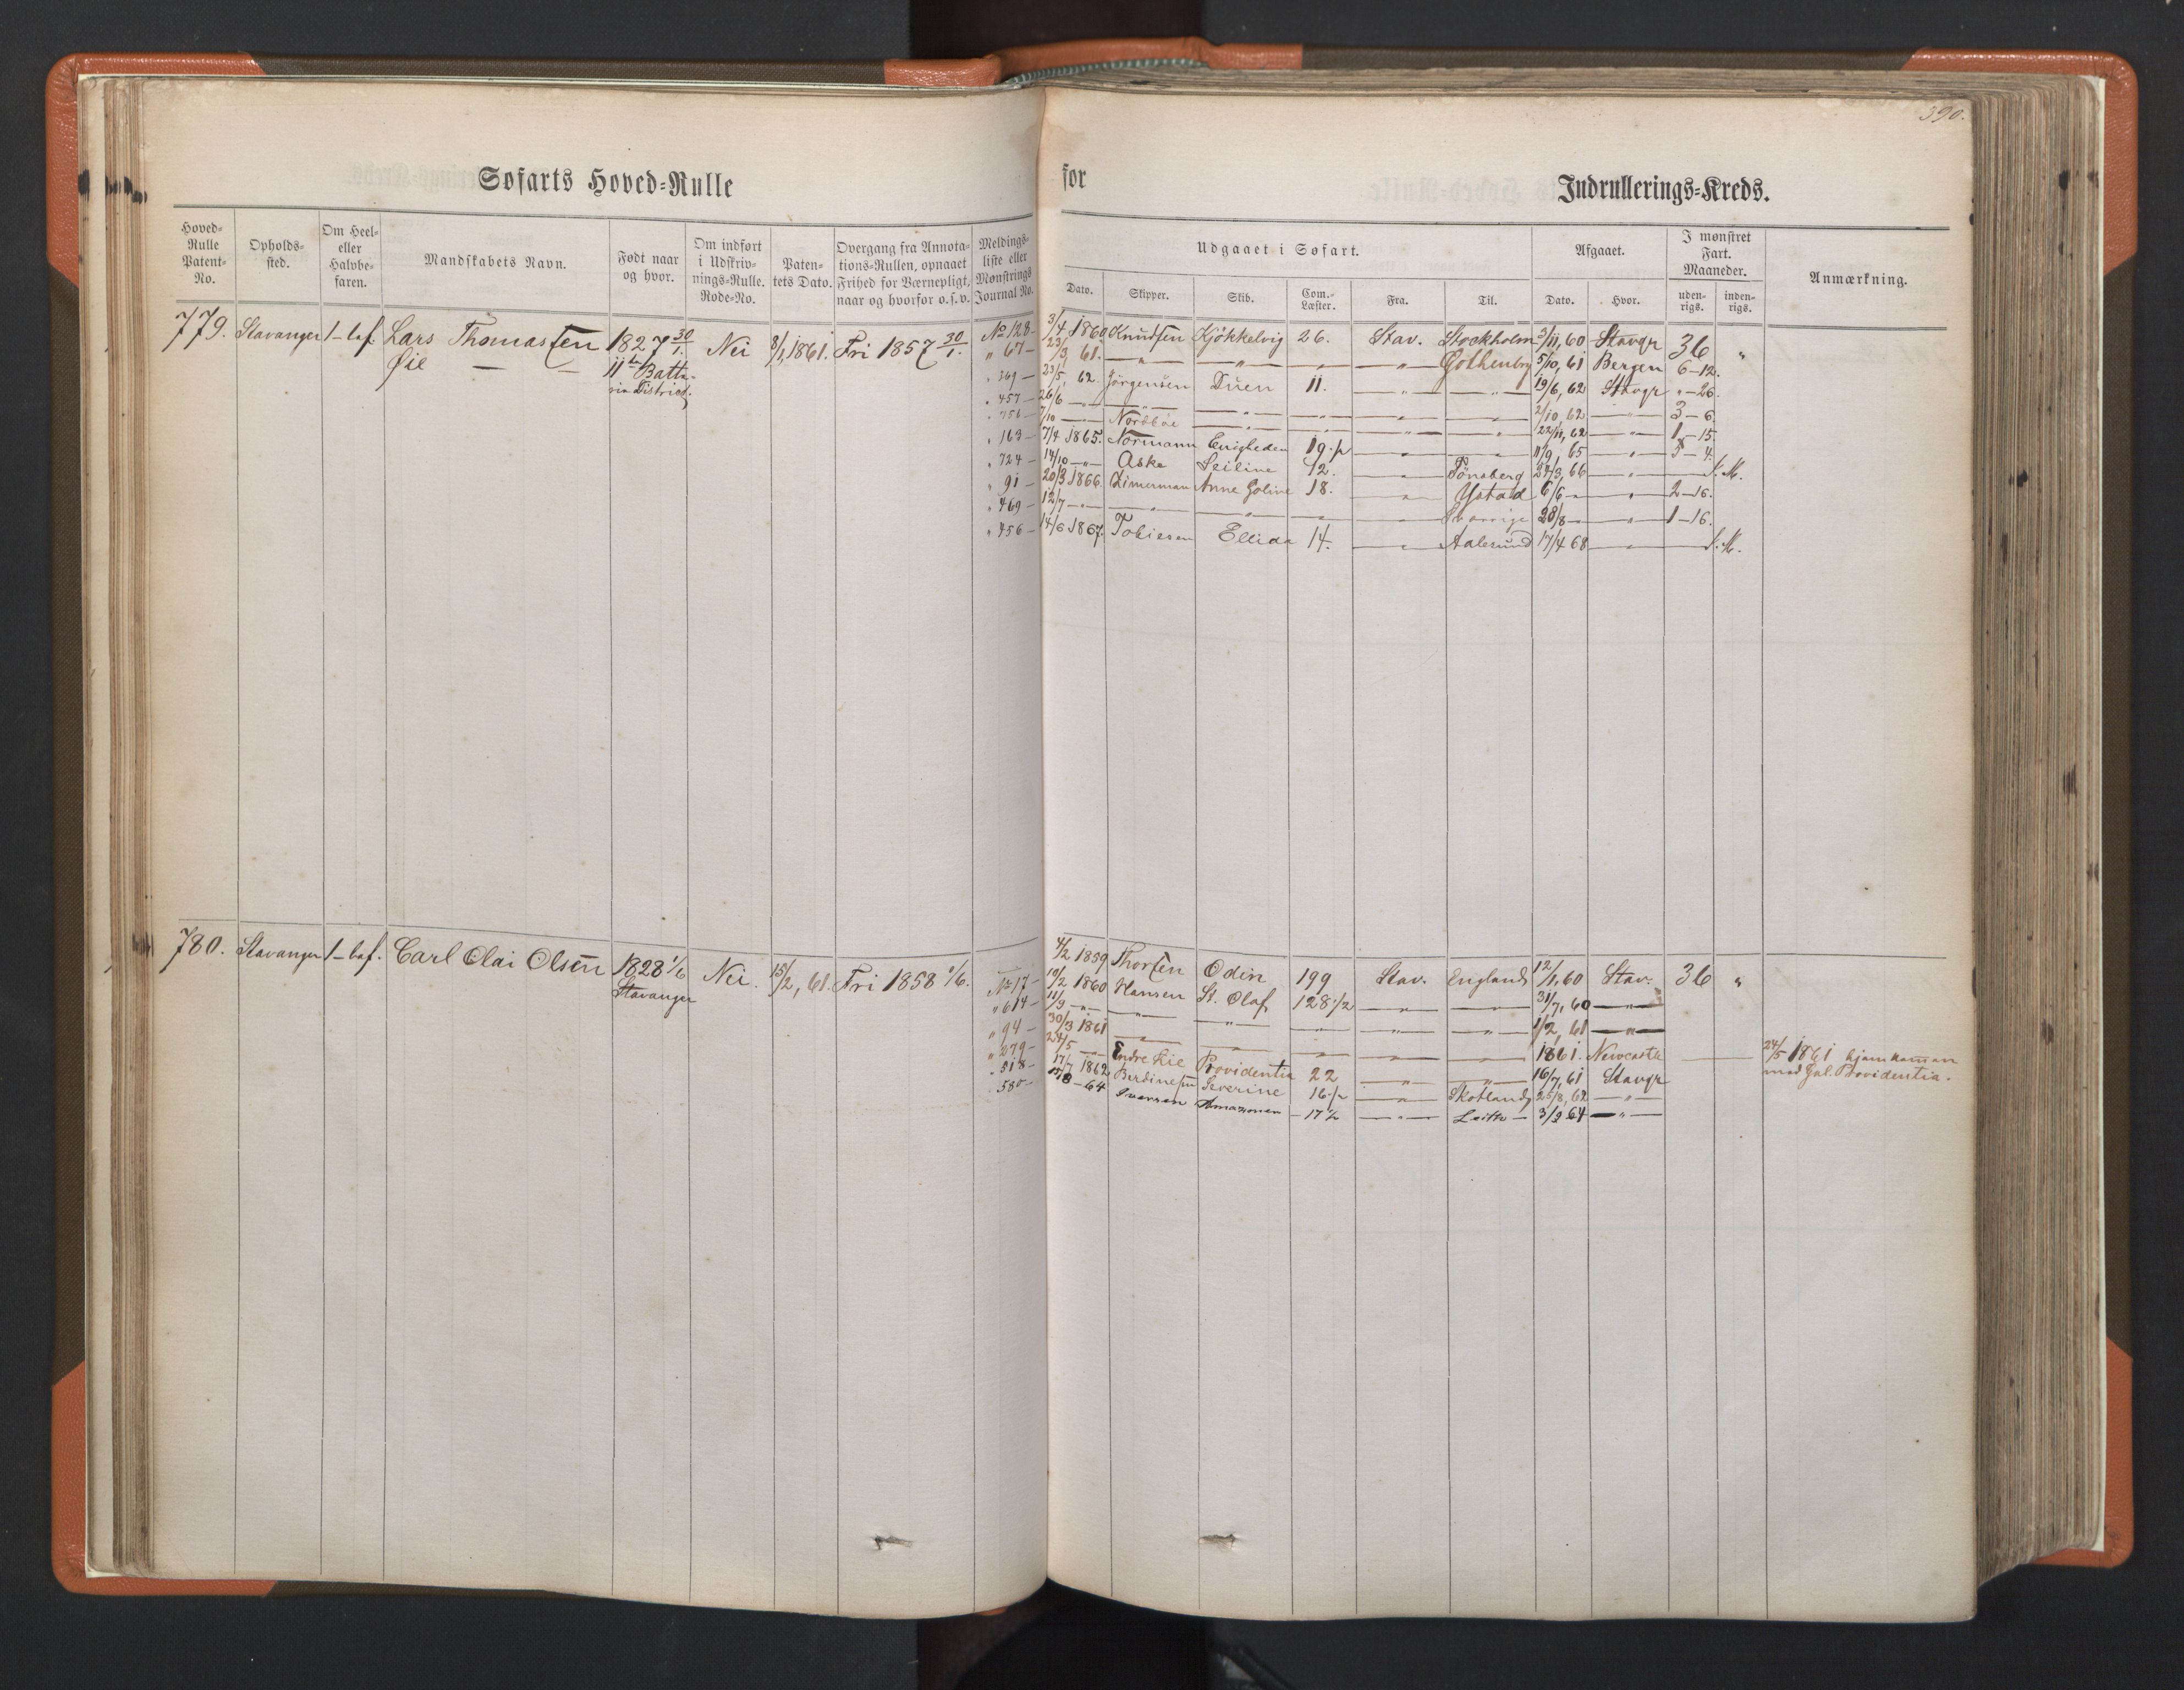 390.
Søfarts Hoved-Rulle for Indrullerings-Kreds.
Hoved-Rulle Patent-No. Opholds-sted. Om Heel- eller Halvbe-faren. Mandskabets Navn. Født naar og hvor. Om indført i Udskriv-nings-Rulle. Rode-No. Paten-tets Dato. Overgang fra Annota-tions-Rullen, opnaaet Frihed for Værnepligt, naar og hvorfor o.s.v. Meldings-liste eller Mønstrings Journal No.
Udgaaet i Søfart. Afgaaet. I mønstret Fart. Maaneder. Anmærkning.
Dato. Skipper. Skib. Com.-Læster. Fra. Til. Dato. Hvor. uden-rigs. inden-rigs.
779. Stavanger 1-bef. Lars Thomassen 1827 30/1. Nei 8/1, 1861. Fri 1857 30/1. No 128- 3/4 1860 Knudsen Kjökkelvig 26. Stav. Stockholm 3/11, 60 Stavgr 36 "
Øie — — 11te Batte-rie District. " 67- 23/3 61. —"— —"— —"— —"— Gothenbrg 5/10, 61 Bergen 6-12.
" 369- 23/5, 62. Jörgensen Duen 11. —"— —"— 19/6, 62 Stavgr "-26.
" 457- 26/6 —"— —"— —"— —"— —"— 2/10, 62 —"— 3-6.
" 756- 7/10 —"— Nordböe —"— —"— —"— —"— 22/11, 62 —"— 1-15.
" 163- 7/4 1865. Normann Enigheden 19 1/2 —"— —"— 11/9, 65 —"— 5-4.
" 724- 14/10 —"— Aske Seiline 12. —"— Tönsberg 24/3, 66 —"— S. M.
" 91- 20/3 1866. Zimerman Anne Goline 18. —"— Ystad 6/6 —"— —"— 2-16.
" 469- 12/7 —"— —"— —"— —"— —"— Sverrige 28/8 —"— —"— 1-16.
" 456- 14/6 1867. Tobiesen Ellida 14. —"— Aalesund 17/4 68 —"— S. M.
780. Stavanger 1-bef. Carl Olai Olsen 1828 1/6 Nei. 15/2, 61. Fri 1858 1/6. 4/2 1859 Thorsen Odin 199 Stav. England 12/1, 60 Stav. 36 "
Stavanger No 17- 10/2 1860 Hansen St. Olaf 128 1/2 —"— —"— 31/7, 60 —"—
" 614- 11/9 —"— —"— —"— —"— —"— —"— 1/2, 61 —"—
" 94- 30/3 1861 —"— —"— —"— —"— —"— 1861. Newcastle —— 24/5 1861 hjemkommen
" 279- 24/5 —"— Endre Lie Providentia 22 —"— —"— 16/7, 61 Stavgr med Gal. Providentia.
" 518- 17/7 1862 Berdinesen Severine 16 1/2 —"— Skotland 25/8, 62 —"—
" 580- 15/8-64 Iversen Amazonen 17 1/2 —"— Leith — 3/9 64 —"—